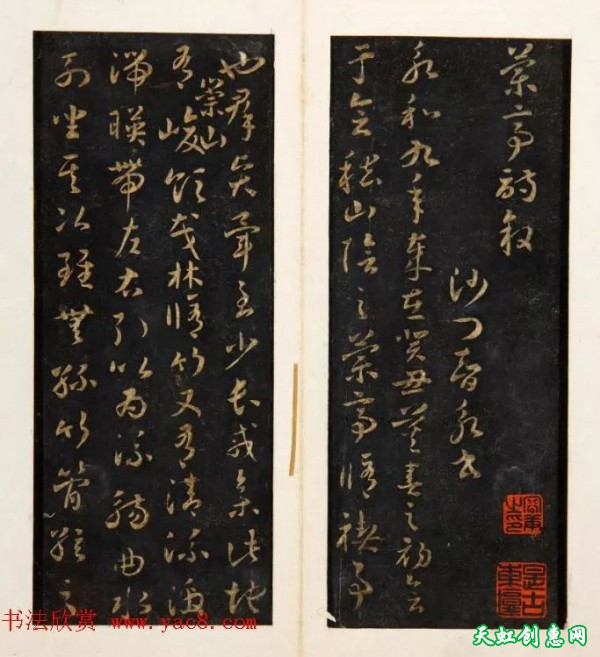 蘭亭詩敘
沙門智永書
永和九年歲在癸丑暮春之初會
于會稽山陰之蘭亭脩禊事
也羣賢畢至少長咸集此地
有崇山峻領茂林脩竹又有清流激
湍暎帶左右引以為流觴曲水
列坐其次雖無絲竹管絃之
书法欣赏 www.yac8.com
天虹创惠网